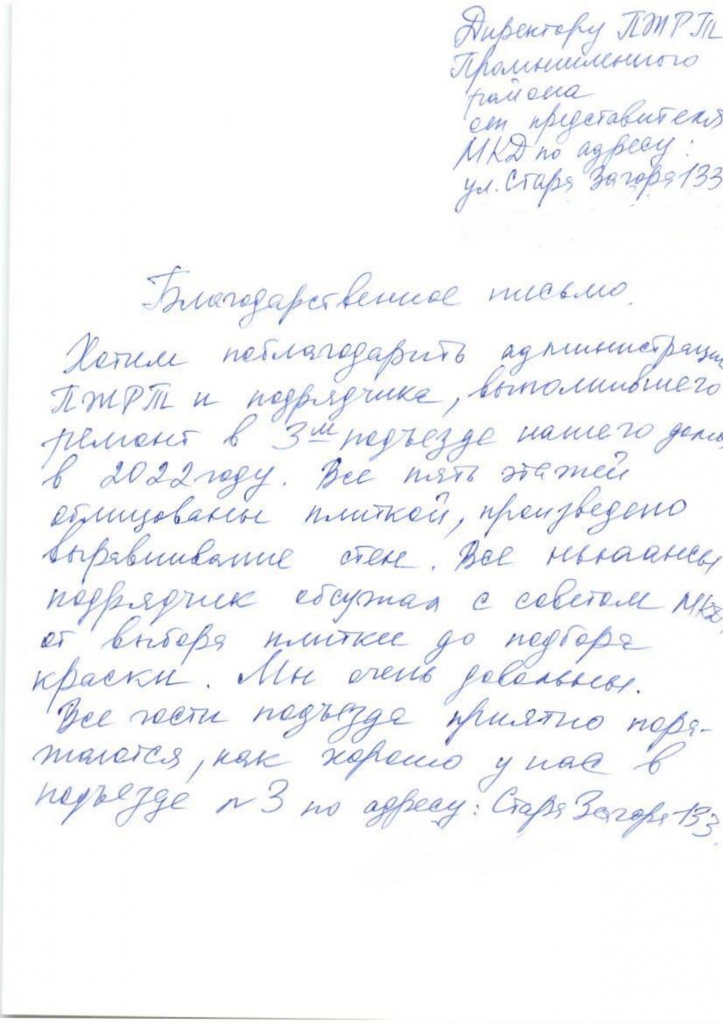 Директору ПЖРТ
Промышленного
района
от представителя
МКД по адресу:
ул. Стара Загора 133
Благодарственное письмо.
Хотим поблагодарить администрацию
ПЖРТ и подрядчика, выполнившего
ремонт в 3м подъезде нашего дома
в 2022 году. Все пять этажей
облицованы плиткой, произведено
выравнивание стен. Все ньюансы
подрядчик обсужал с советом МКД,
от выбора плитки до подбора
краски. Мы очень довольны.
Все гости подъезда приятно пора-
жаются, как хорошо у нас в
подъезде №3 по адресу: Стара Загора 133.